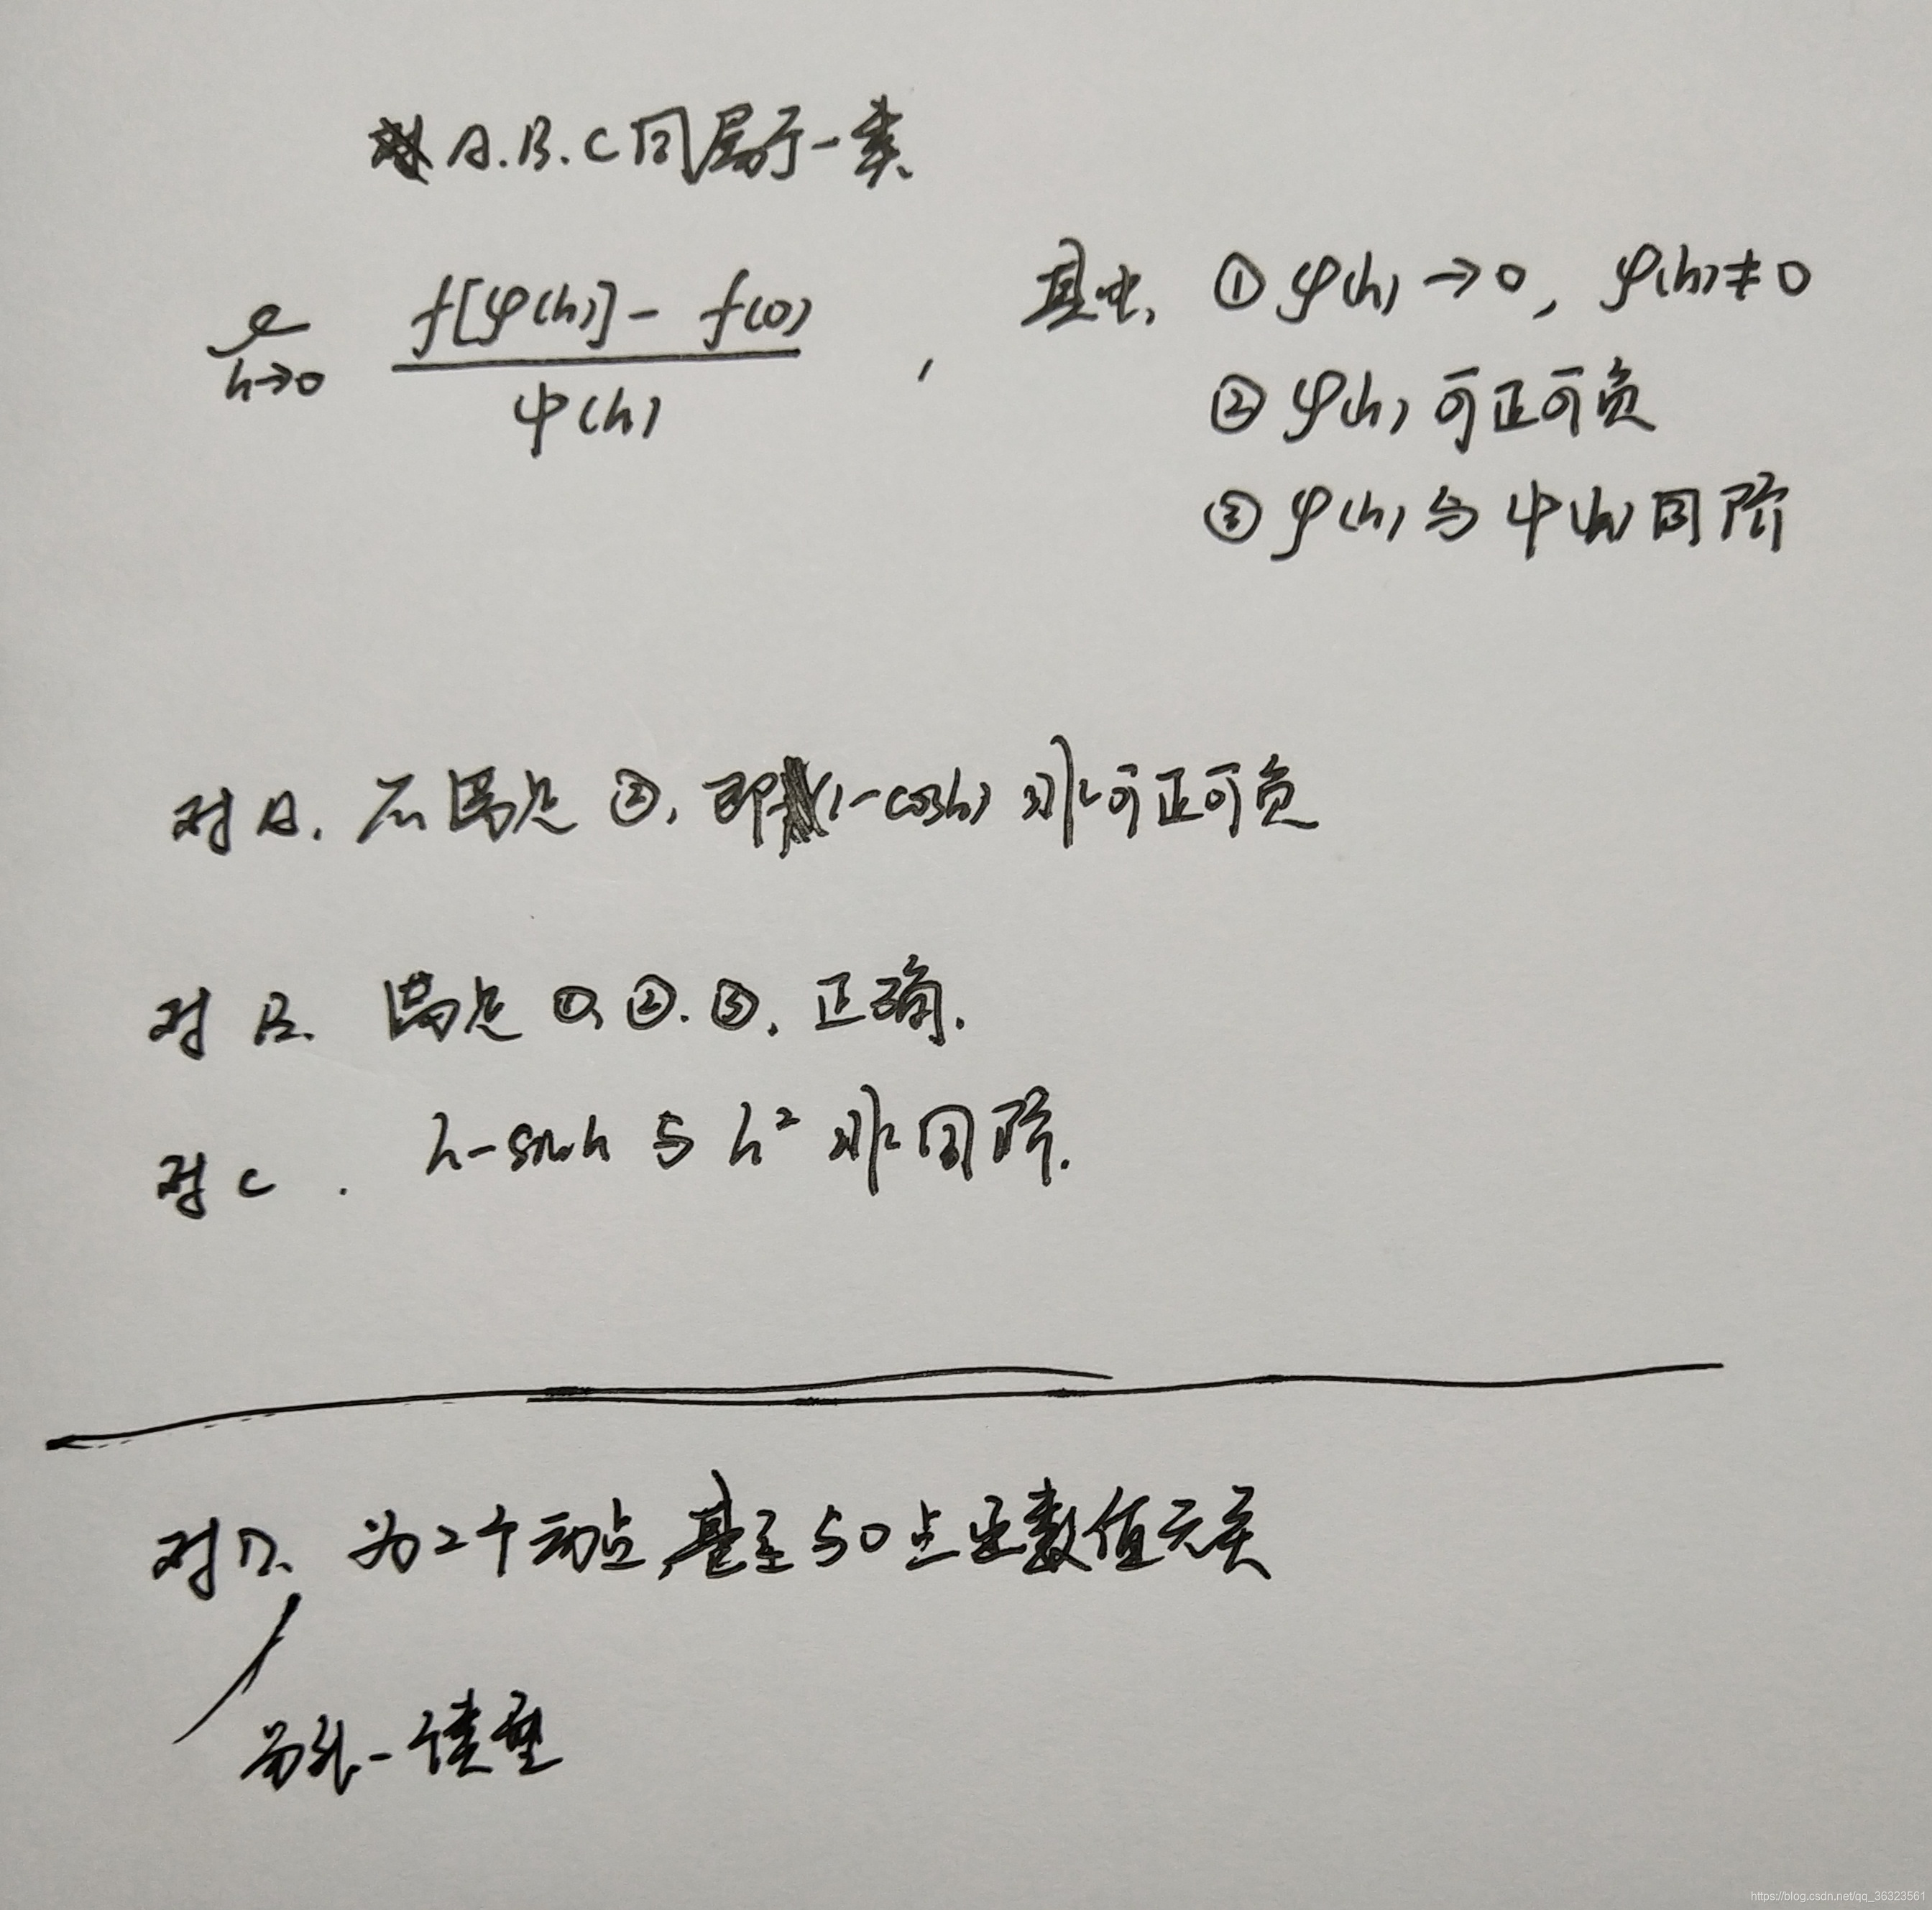 A.B.C同属于一类
lim h→0 f[φ(h)]-f(0) / ψ(h) , 其中, ① φ(h)→0, φ(h)≠0
② φ(h)可正可负
③ φ(h)与ψ(h)同阶
对A. 不满足②, 即(1-cosh)非可正可负
对B. 满足①,②.③. 正确.
对C. h-sinh与h²非同阶.
对D. 为2个动点,甚至与0点处数值无关
另外一模型
https://blog.csdn.net/qq_36323561